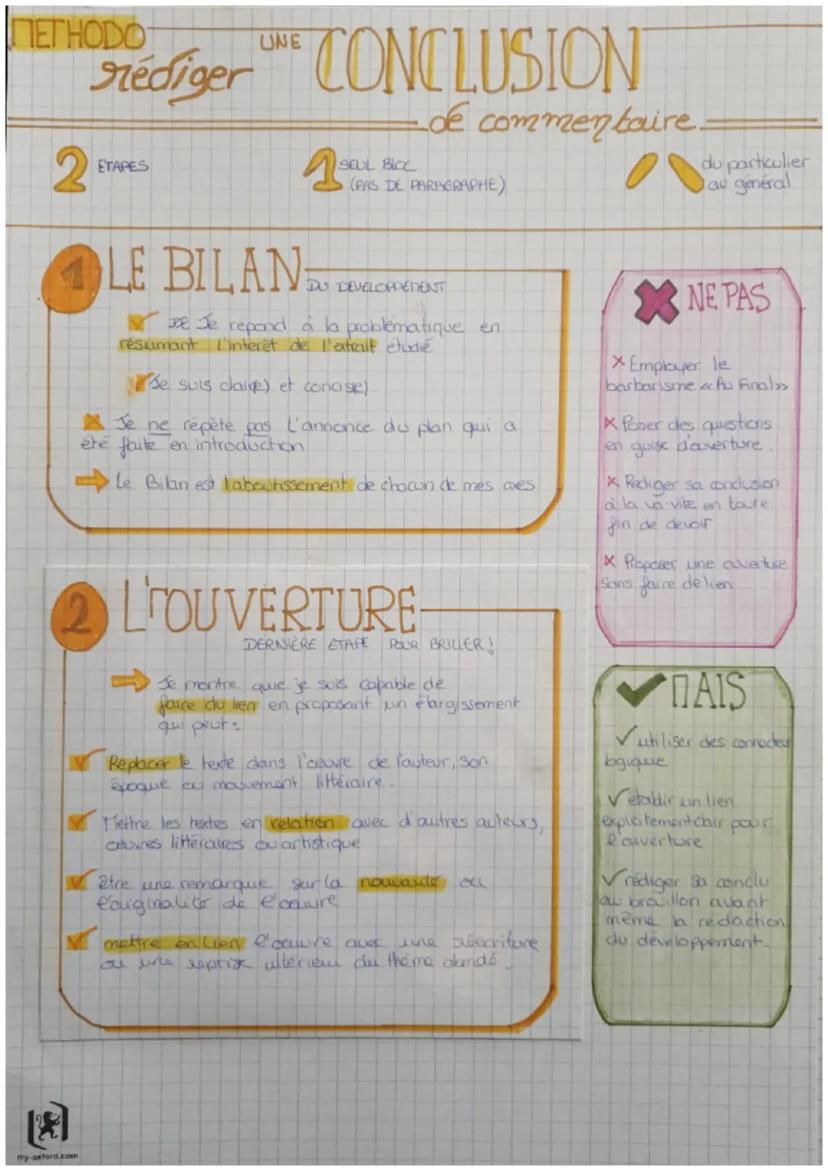 METHODO
rédiger UNE CONCLUSION
de commentaire
2 ETAPES
1 SEUL BLOC
(PAS DE PARAGRAPHE)
du particulier
au général
1 LE BILAN DU DEVELOPPEMENT
Je répond à la problématique en
résumant l'interêt de l'extrait étudié
Je suis clair(e) et concis(e)
Je ne répète pas l'annonce du plan qui a
été faite en introduction
Le Bilan est l'aboutissement de chacun de mes axes
NE PAS
Employer le
barbarisme « Au Final »
Poser des questions
en guise d'ouverture.
Rédiger sa conclusion
à la va-vite en toute
fin de devoir
Proposer une ouverture
sans faire de lien
2 L'OUVERTURE
DERNIÈRE ETAPE POUR BRILLER!
Je montre que je suis capable de
faire du lien en proposant un élargissement
qui peut :
Replacer le texte dans l'œuvre de l'auteur, son
époque ou mouvement littéraire.
Mettre les textes en relation avec d'autres auteurs,
œuvres littéraires ou artistique
être une remarque sur la nouveauté ou
l'originalité de l'œuvre
mettre en lien l'œuvre avec une réécriture
ou une reprise ultérieu du thème abordé.
MAIS
utiliser des connecteur
logique
établir un lien
explicitement clair pour
l'ouverture
rédiger sa conclu
au brouillon avant
même la rédaction
du développement.
my-oxford.com